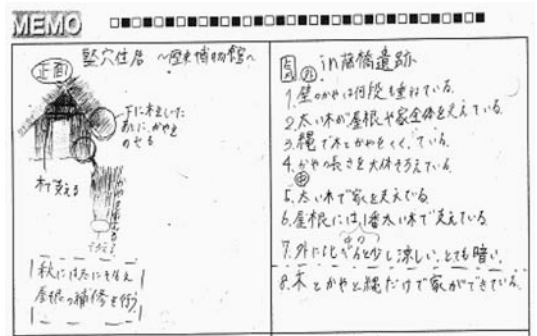 MEMO
竪穴住居 〜歴史博物館〜
正面
下に木をしいた
あとに、かやを
のせる
木で支える
そろえる
秋には冬にそなえ
屋根の補修を行う
in 藤橋遺跡
1. 壁のかやは何段も重ねている。
2. 太い木が屋根や家全体を支えている。
3. 縄で木とかやをくくっている。
4. かやの長さを大体そろえている。
5. 太い木で家を支えている。
6. 屋根には1番太い木で支えている
7. 外に比べると少し涼しい、とても暗い。
8. 木とかやと縄だけで家ができている。